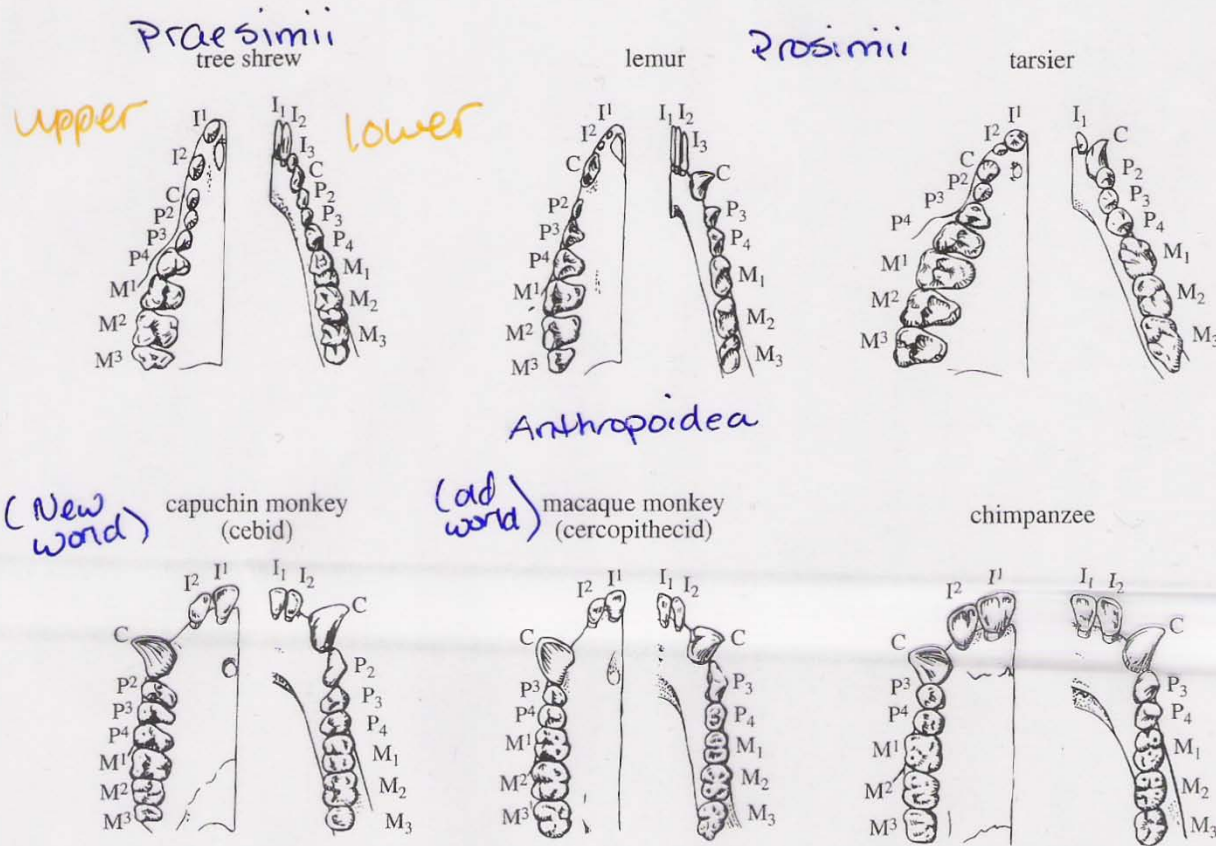 Praesimii
tree shrew
upper
lower
I¹
I²
C
P²
P³
P⁴
M¹
M²
M³
I₁
I₂
I₃
C
P₂
P₃
P₄
M₁
M₂
M₃
lemur
Prosimii
I¹
I²
C
P²
P³
P⁴
M¹
M²
M³
I₁
I₂
I₃
C
P₃
P₄
M₁
M₂
M₃
tarsier
I¹
I²
C
P²
P³
P⁴
M¹
M²
M³
I₁
C
P₂
P₃
P₄
M₁
M₂
M₃
Anthropoidea
(New
world)
capuchin monkey
(cebid)
I²
I¹
C
P²
P³
P⁴
M¹
M²
M³
I₁
I₂
C
P₂
P₃
P₄
M₁
M₂
M₃
(old
world)
macaque monkey
(cercopithecid)
I²
I¹
C
P³
P⁴
M¹
M²
M³
I₁
I₂
C
P₃
P₄
M₁
M₂
M₃
chimpanzee
I²
I¹
C
P³
P⁴
M¹
M²
M³
I₁
I₂
C
P₃
P₄
M₁
M₂
M₃